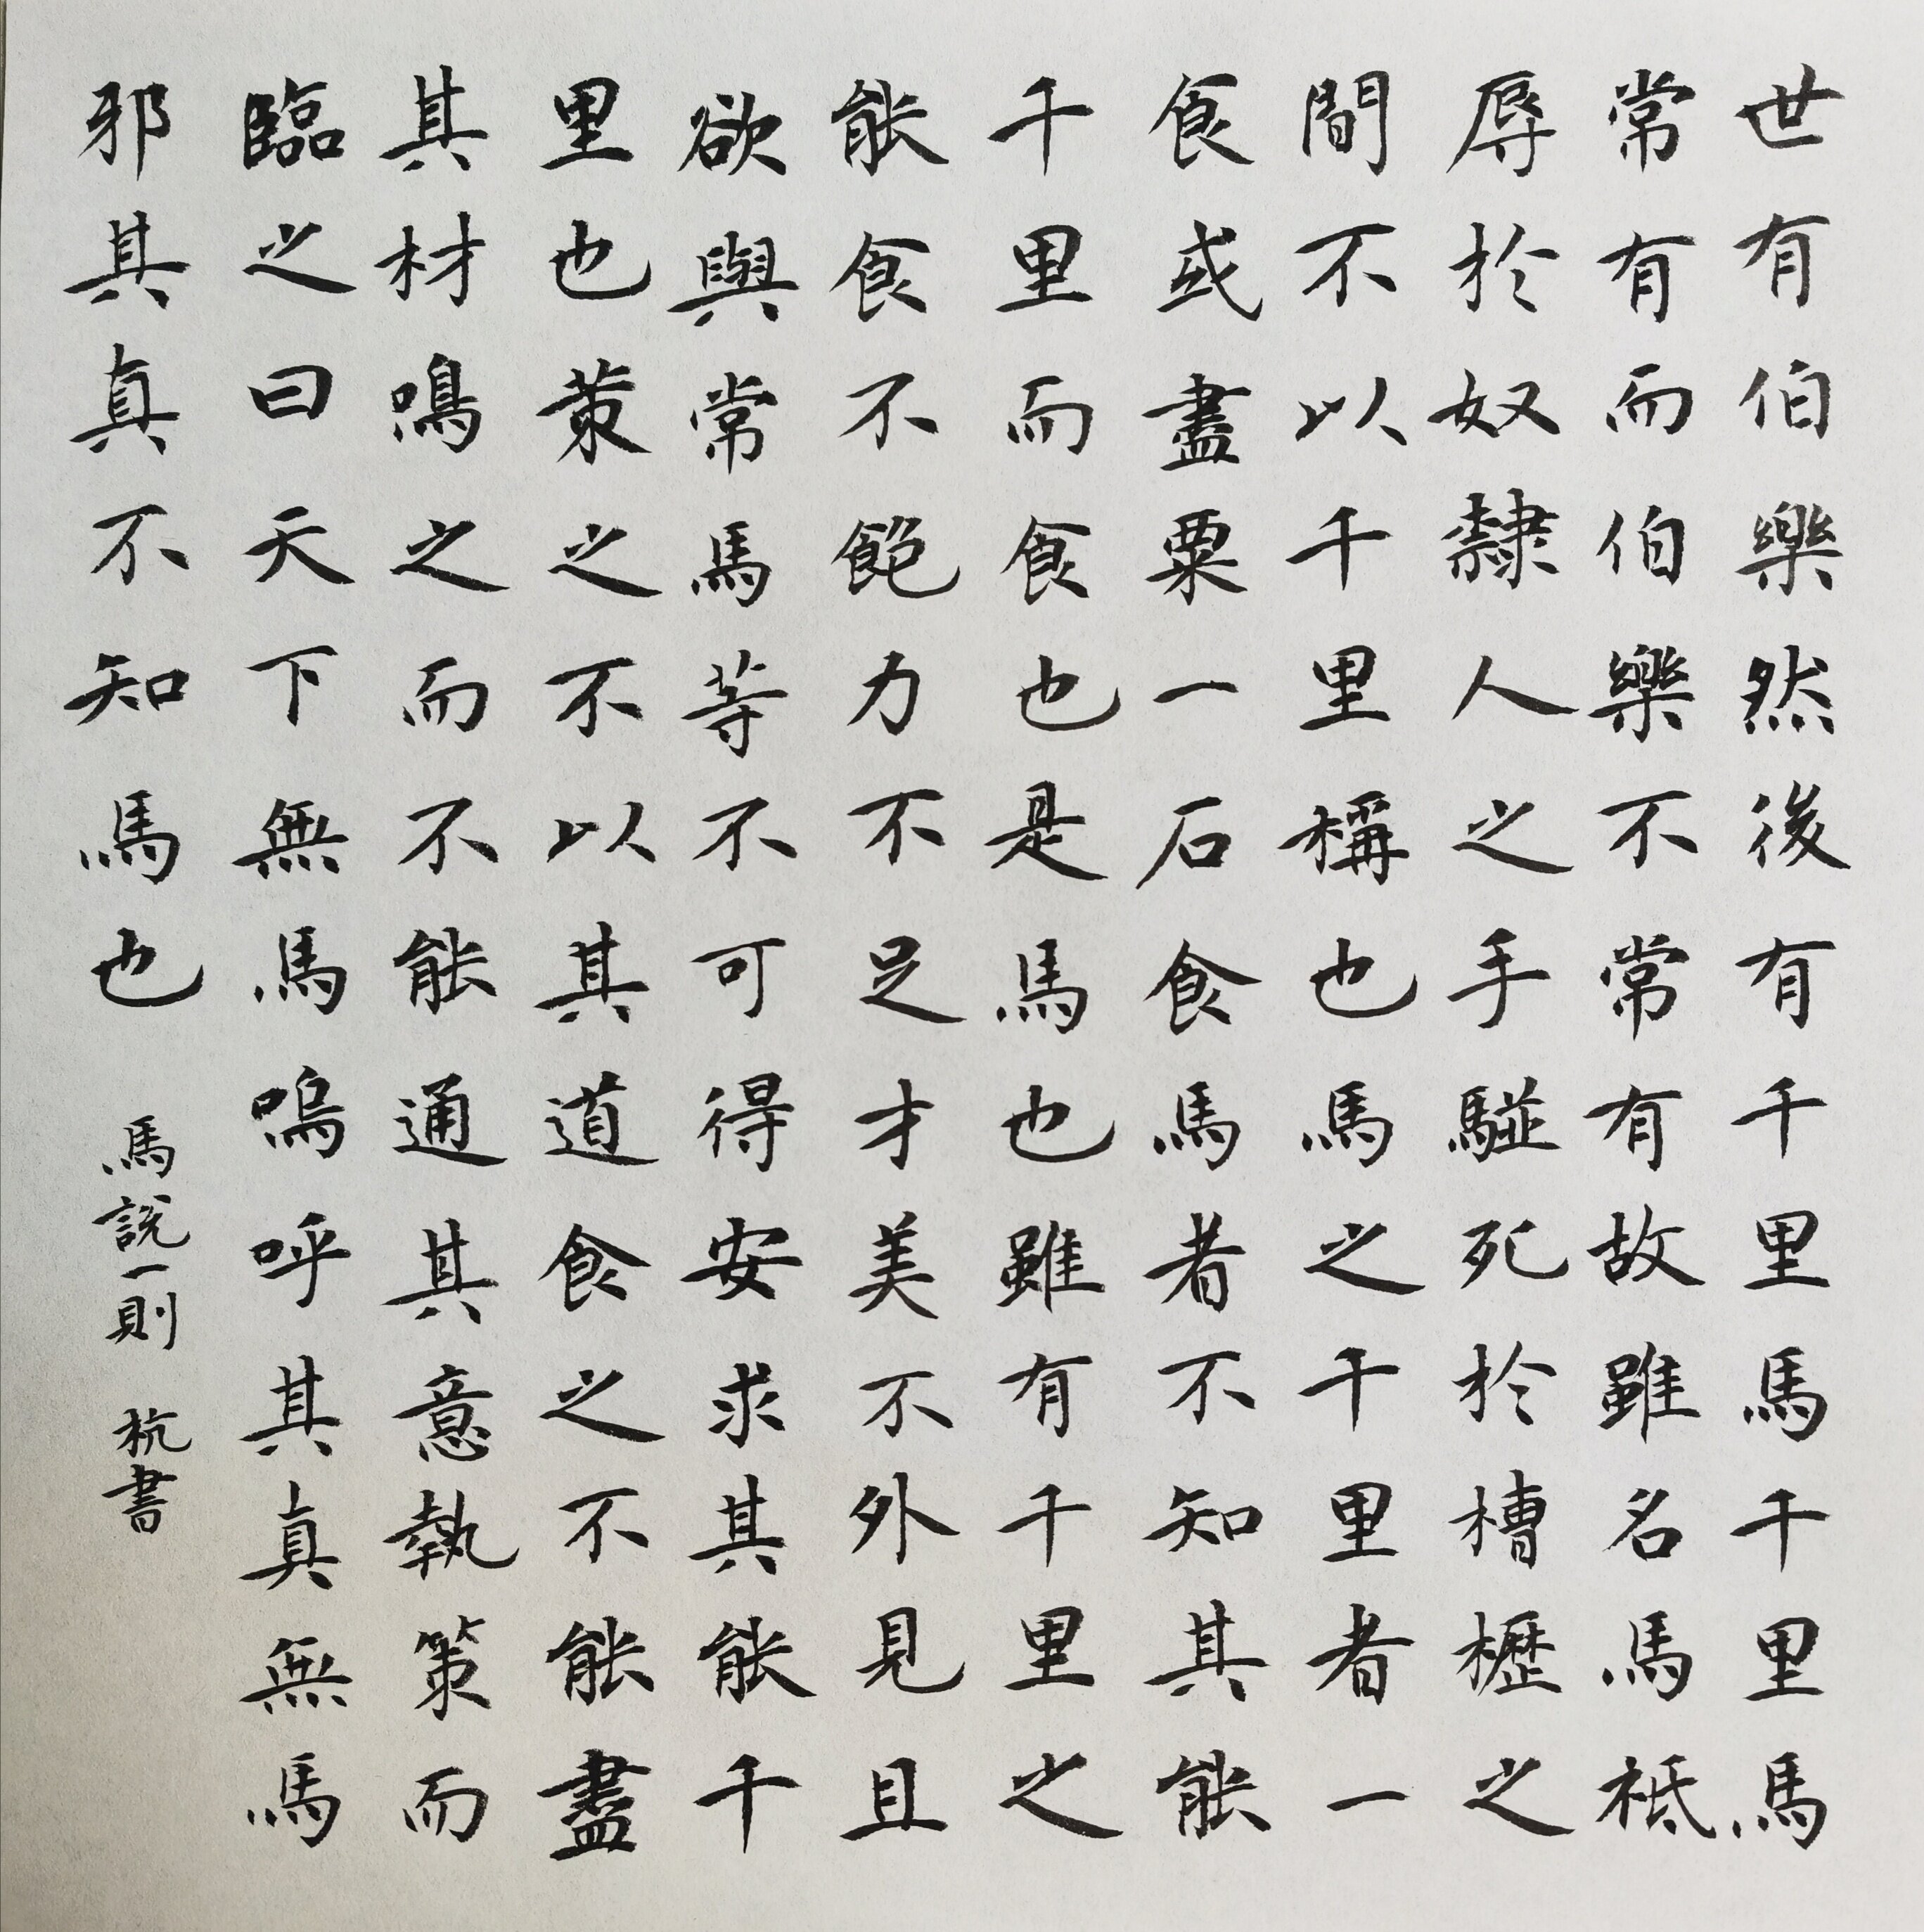 世有伯樂然後有千里馬千里馬
常有而伯樂不常有故雖名馬祗
辱於奴隸人之手駢死於槽櫪之
間不以千里稱也馬之千里者一
食或盡粟一石食馬者不知其能
千里而食也是馬也雖有千里之
能食不飽力不足才美不外見且
欲與常馬等不可得安求其能千
里也策之不以其道食之不能盡
其材鳴之而不能通其意執策而
臨之曰天下無馬嗚呼其真無馬
邪其真不知馬也
馬說一則 杭書